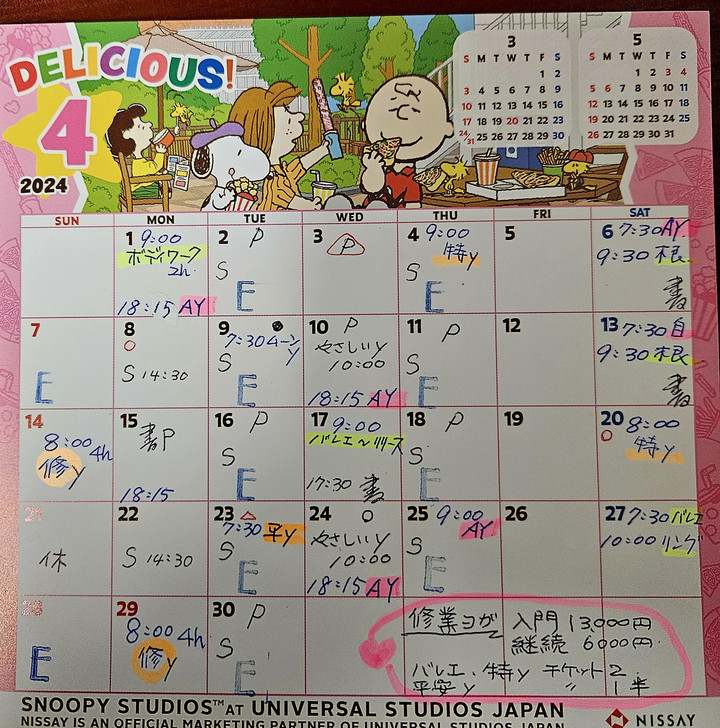 DELICIOUS!
4
2024
3
S M T W T F S
1 2
3 4 5 6 7 8 9
10 11 12 13 14 15 16
17 18 19 20 21 22 23
24/31 25 26 27 28 29 30
5
S M T W T F S
1 2 3 4
5 6 7 8 9 10 11
12 13 14 15 16 17 18
19 20 21 22 23 24 25
26 27 28 29 30 31
SUN MON TUE WED THU FRI SAT
1 9:00
ボディワーク
2h.
18:15 AY
2 P
S
E
3 P
4 9:00
特y
S
E
5
6 7:30 AY
9:30 根
書
7
E
8
S 14:30
9
7:30 ムーン
y
S
E
10 P
やさしいy
10:00
18:15 AY
11 P
S
E
12
13 7:30 自
9:30 根
書
14
8:00 4h
修y
15
書P
18:15
16 P
S
E
17 9:00
バレエ〜リリース
17:30 書
18 P
S
E
19
20 8:00
特y
21
休
22
S 14:30
23
7:30 平y
S
E
24
やさしいy
10:00
18:15 AY
25 9:00
AY
S
E
26
27 7:30 バレエ
10:00 リング
28
E
29
8:00 4h
修y
30 P
S
E
修業ヨガ 入門 13,000円
継続 6000円
バレエ、特y チケット 2
平安y 〃 1半
SNOOPY STUDIOS™ AT UNIVERSAL STUDIOS JAPAN
NISSAY IS AN OFFICIAL MARKETING PARTNER OF UNIVERSAL STUDIOS JAPAN
NISSAY